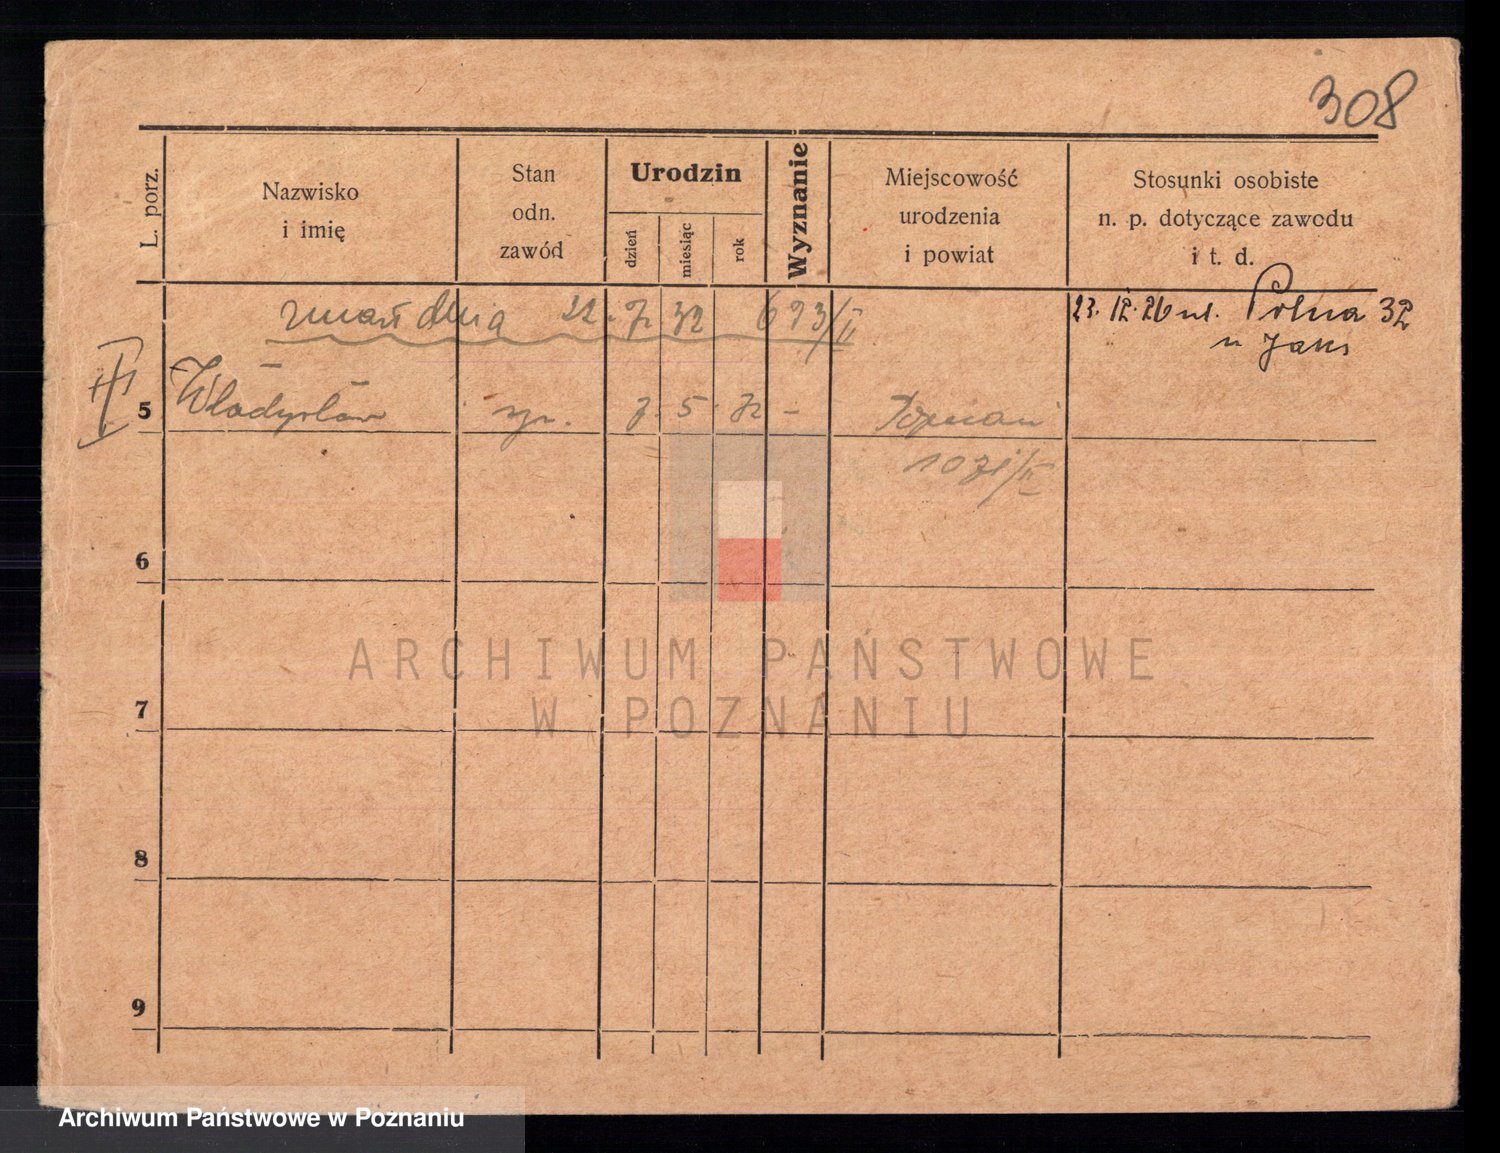 308
L. porz.
Nazwisko
i imię
Stan
odn.
zawód
Urodzin
dzień
miesiąc
rok
Wyznanie
Miejscowość
urodzenia
i powiat
Stosunki osobiste
n. p. dotyczące zawodu
i t. d.
zmarł dnia 22. 7. 32 693/II
23. 12. 26 ul. Polna 32
u Jans
III
5 Władysław sy. 7. 5. 32 - Poznań
1071/II
6
7
8
9
ARCHIWUM PAŃSTWOWE
W POZNANIU
Archiwum Państwowe w Poznaniu